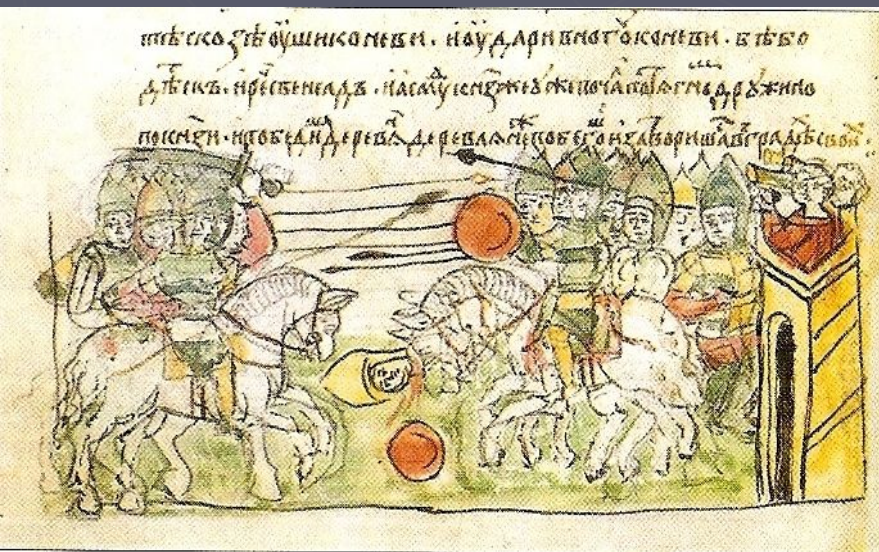 скозѣ оуши коневи. и оудари в ногы коневи. бѣ бо
дѣтескъ. и рече свенелдъ. и асмꙋⷣ кнѧзь уже почалъ дружино
по кнѧзи. и победиша деревлѧ деревлѧне побегоша и затворишасѧ в градѣхъ своиⷯ.